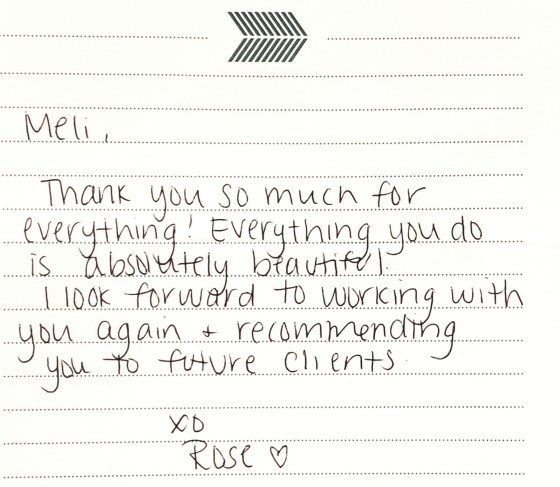 Meli,
Thank you so much for
everything! Everything you do
is absolutely beautiful.
I look forward to working with
you again + recommending
you to future clients.
xo
Rose ♡